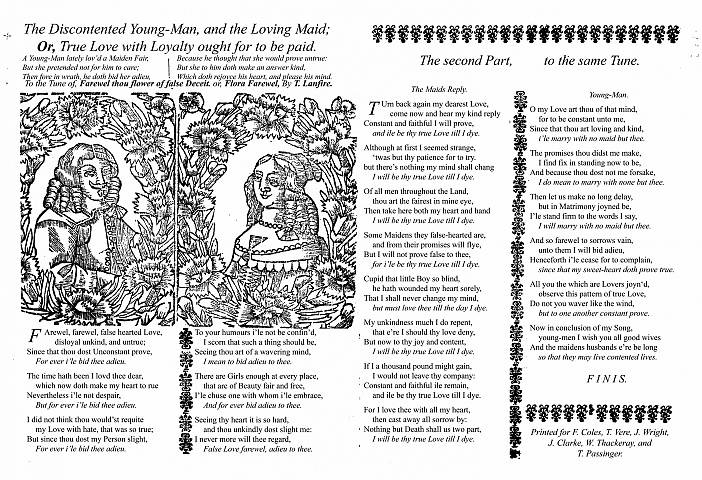 The Discontented Young-Man, and the Loving Maid;
Or, True Love with Loyalty ought for to be paid.
A Young-Man lately lov'd a Maiden Fair,
But she pretended not for him to care;
Then fore in wrath, he doth bid her adieu,
Because he thought that she would prove untrue:
But she to him doth make an answer kind,
Which doth rejoyce his heart, and please his mind.
To the Tune of, Farewel thou flower of false Deceit. or, Flora Farewel, By T. Lanfire.
FArewel, farewel, false hearted Love,
disloyal unkind, and untrue;
Since that thou dost Unconstant prove,
For ever i'le bid thee adieu.
The time hath been I lovd thee dear,
which now doth make my heart to rue
Nevertheless i'le not despair,
But for ever i'le bid thee adieu.
I did not think thou would'st requite
my Love with hate, that was so true;
But since thou dost my Person slight,
For ever i'le bid thee adieu.
To your humours i'le not be confin'd,
I scorn that such a thing should be,
Seeing thou art of a wavering mind,
I mean to bid adieu to thee.
There are Girls enough at every place,
that are of Beauty fair and free,
I'le chuse one with whom i'le embrace,
And for ever bid adieu to thee.
Seeing thy heart it is so hard,
and thou unkindly dost slight me:
I never more will thee regard,
False Love farewel, adieu to thee.
The second Part, to the same Tune.
The Maids Reply.
TUrn back again my dearest Love,
come now and hear my kind reply
Constant and faithful I will prove,
and ile be thy true Love till I dye.
Although at first I seemed strange,
'twas but thy patience for to try.
but there's nothing my mind shall chang
I will be thy true Love till I dye.
Of all men throughout the Land,
thou art the fairest in mine eye,
Then take here both my heart and hand
I will be thy true Love till I dye.
Some Maidens they false-hearted are,
and from their promises will flye,
But I will not prove false to thee,
for i'le be thy true Love till I dye.
Cupid that little Boy so blind,
he hath wounded my heart sorely,
That I shall never change my mind,
but must love thee till the day I dye.
My unkindness much I do repent,
that e're I should thy love deny,
But now to thy joy and content,
I will be thy true Love till I dye.
If I a thousand pound might gain,
I would not leave thy company:
Constant and faithful ile remain,
and ile be thy true Love till I dye.
For I love thee with all my heart,
then cast away all sorrow by:
Nothing but Death shall us two part,
I will be thy true Love till I dye.
Young-Man.
O my Love art thou of that mind,
for to be constant unto me,
Since that thou art loving and kind,
i'le marry with no maid but thee.
The promises thou didst me make,
I find fix in standing now to be,
And because thou dost not me forsake,
I do mean to marry with none but thee.
Then let us make no long delay,
but in Matrimony joyned be,
I'le stand firm to the words I say,
I will marry with no maid but thee.
And so farewel to sorrows vain,
unto them I will bid adieu,
Henceforth i'le cease for to complain,
since that my sweet-heart doth prove true.
All you the which are Lovers joyn'd,
observe this pattern of true Love,
Do not you waver like the wind,
but to one another constant prove.
Now in conclusion of my Song,
young-men I wish you all good wives
And the maidens husbands e're be long
so that they may live contented lives.
F I N I S.
Printed for F. Coles, T. Vere, J. Wright,
J. Clarke, W. Thackeray, and
T. Passinger.